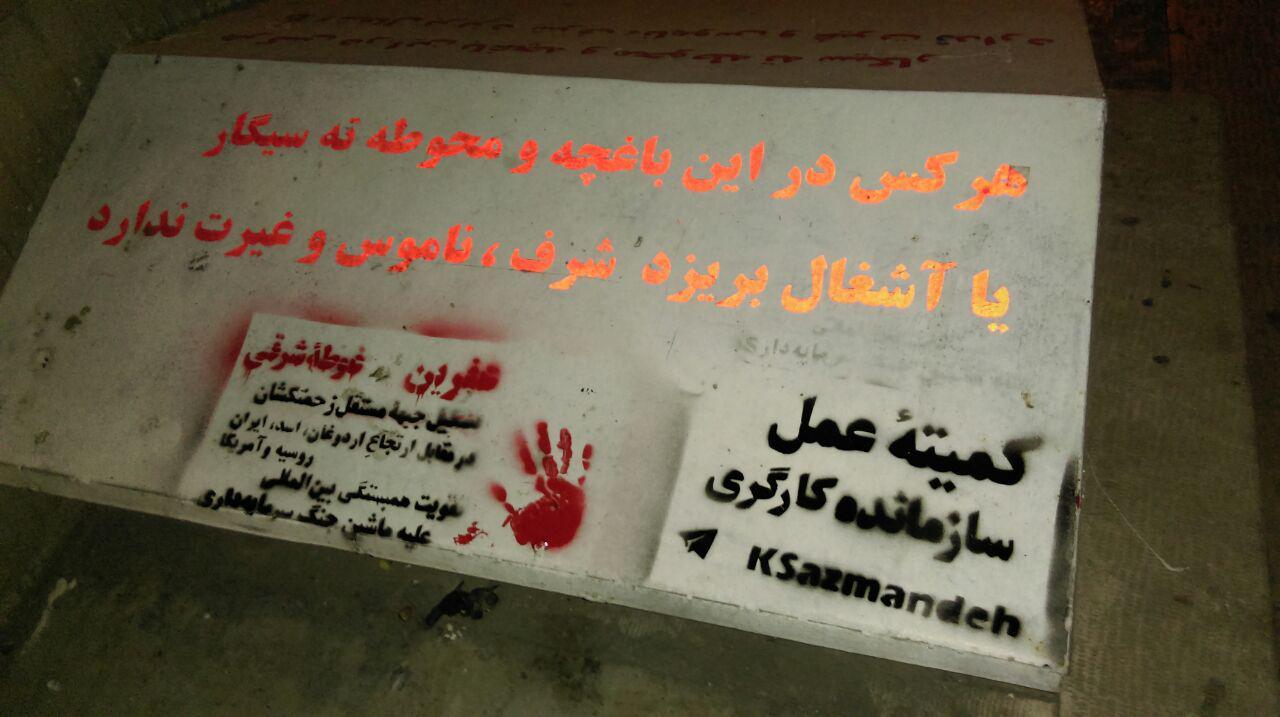 هر کس در این باغچه و محوطه ته سیگار
یا آشغال بریزد شرف، ناموس و غیرت ندارد
غوطهٔ شرقی
تشکیل جبههٔ مستقل زحمتکشان
در مقابل ارتجاع اردوغان، اسد، ایران
روسیه و آمریکا
تقویت همبستگی بین‌المللی
علیه ماشین جنگ سرمایه‌داری
کمیتهٔ عمل
سازمانده کارگری
KSazmandeh